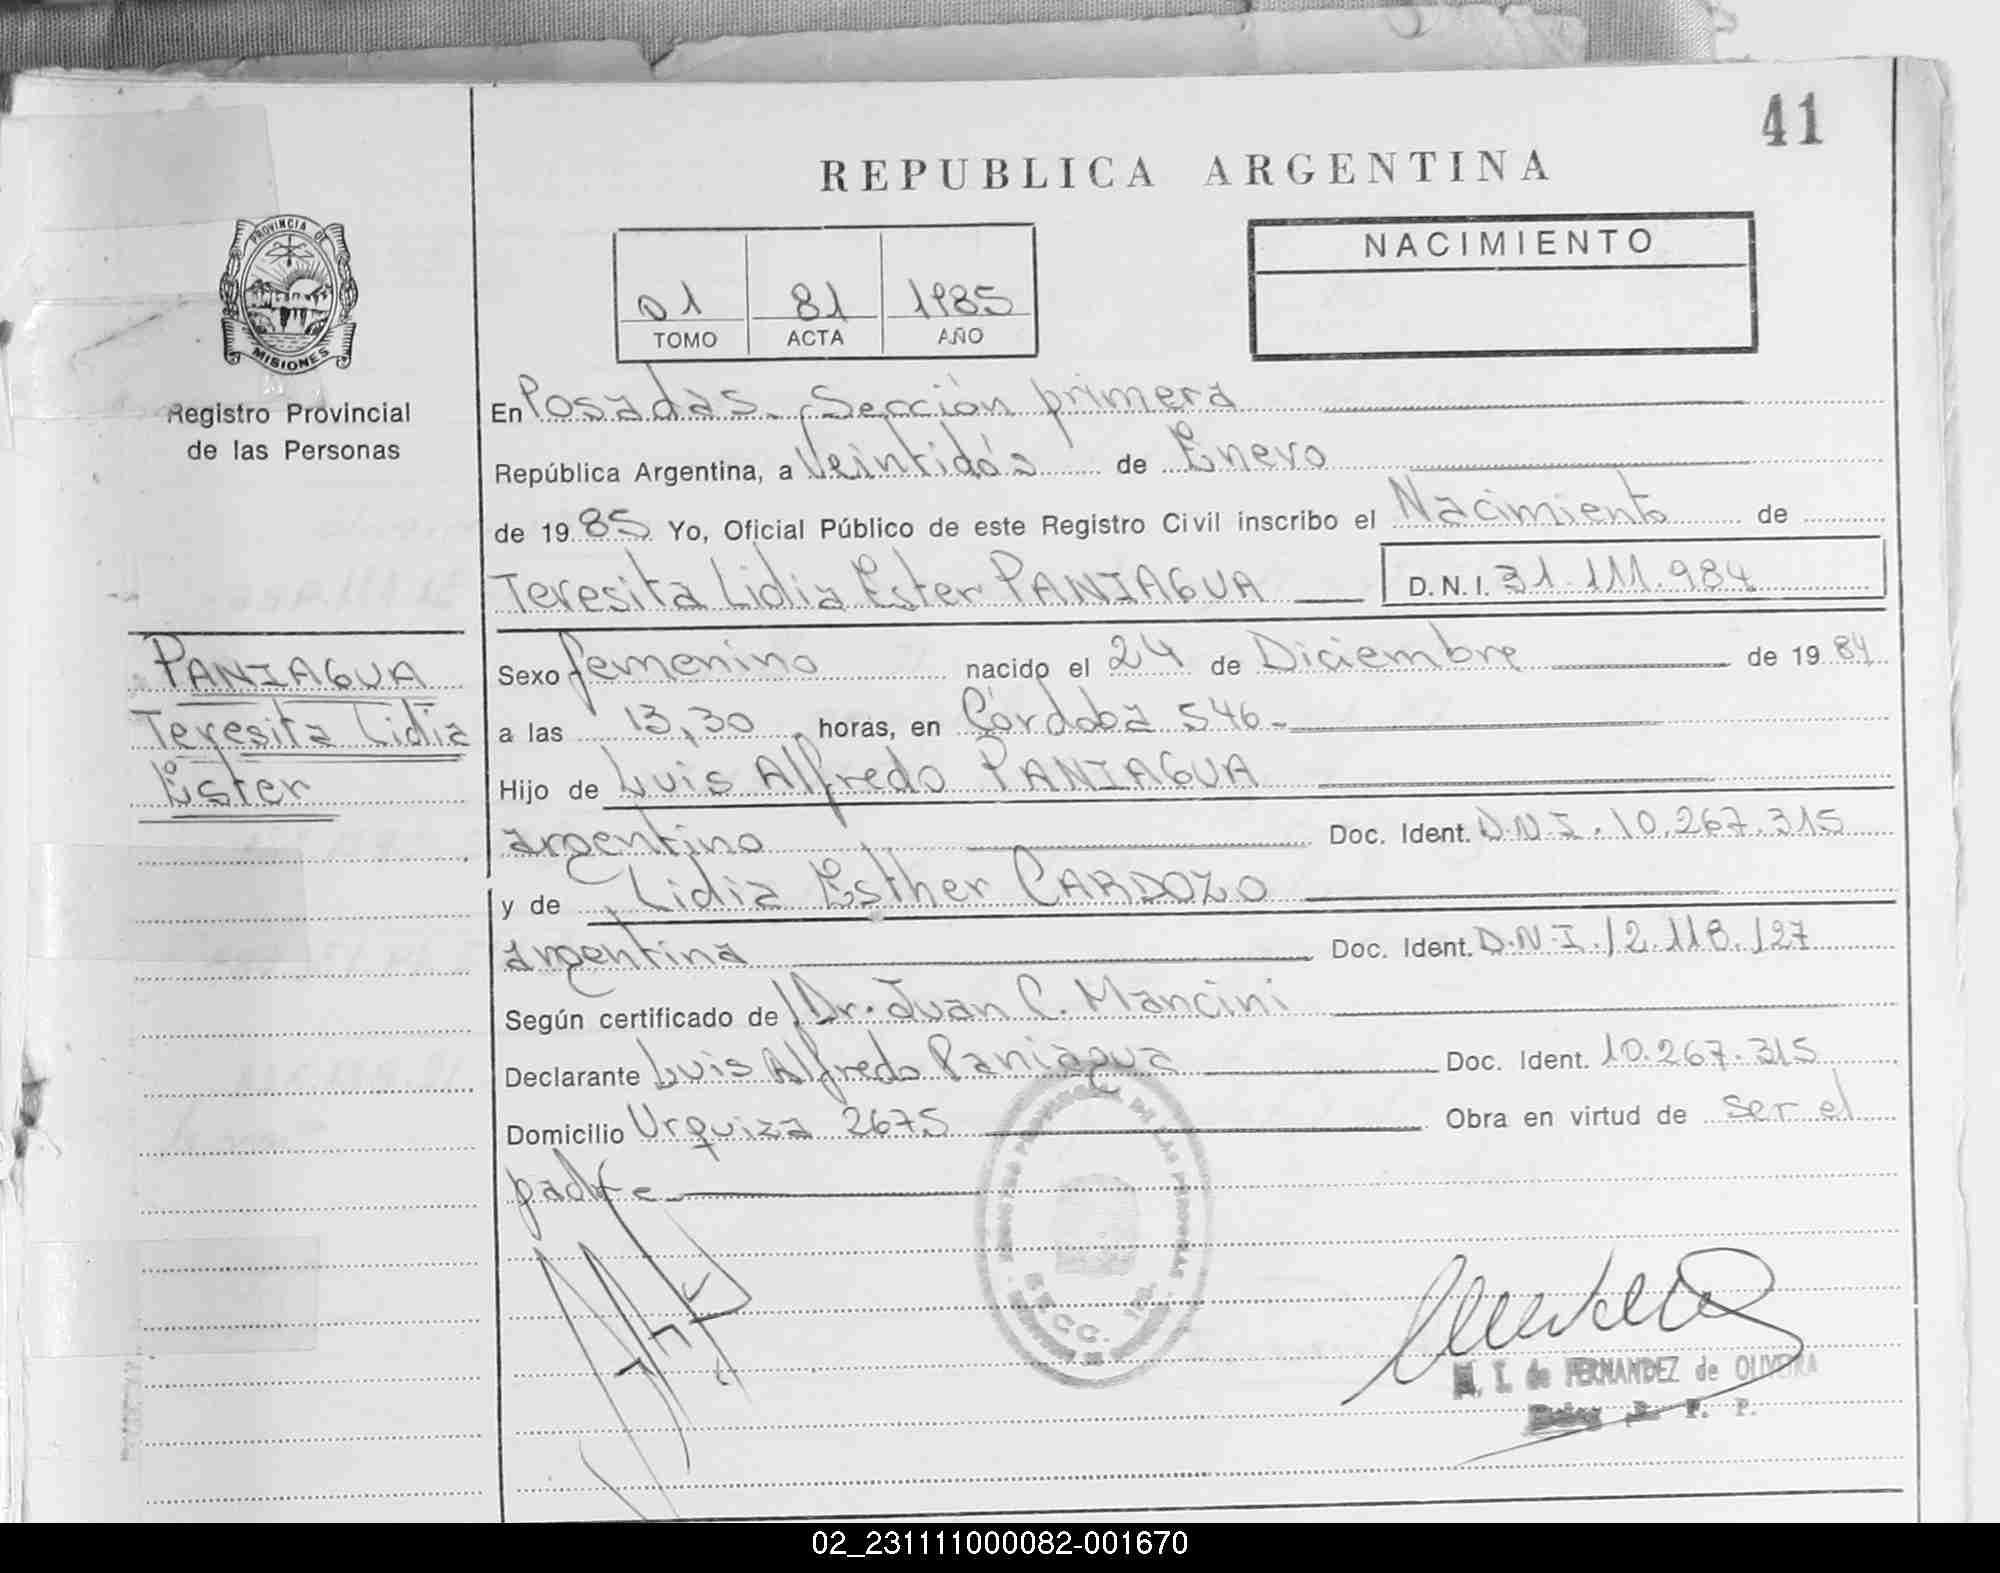 41
REPUBLICA ARGENTINA
PROVINCIA DE
MISIONES
Registro Provincial
de las Personas
01 81 1985
TOMO ACTA AÑO
NACIMIENTO
En Posadas. Sección primera
República Argentina, a Veintidós de Enero
de 19 85 Yo, Oficial Público de este Registro Civil inscribo el Nacimiento de
Teresita Lidia Ester PANIAGUA D.N.I. 31.111.984
PANIAGUA
Teresita Lidia
Ester
Sexo femenino nacido el 24 de Diciembre de 19 84
a las 13,30 horas, en Córdoba 546.-
Hijo de Luis Alfredo PANIAGUA
argentino Doc. Ident. D.N.I. 10.267.315
y de Lidia Esther CARDOZO
argentina Doc. Ident. D.N.I. 12.118.127
Según certificado de Dr. Juan C. Mancini
Declarante Luis Alfredo Paniagua Doc. Ident. 10.267.315
Domicilio Urquiza 2675 Obra en virtud de ser el
padre
DE LAS PERSONAS
SECC. 1ra.
M. I. de FERNANDEZ de OLIVEIRA
R. P. P.
02_231111000082-001670